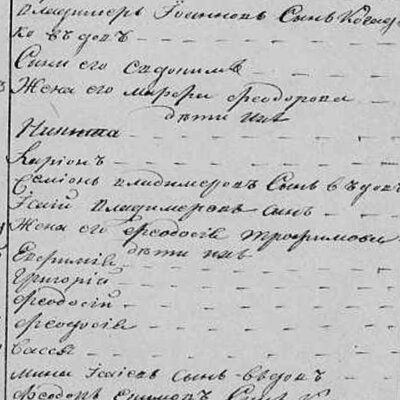 Владимеръ Іоанновъ Сынъ Когад
ко вдовъ
Сынъ его Евдокимъ
Жена его Марфа Феодорова
дѣти ихъ
Никита
Каріонъ
Семіонъ Владимеровъ Сынъ вдовъ
Ісаій Владимеровъ сынъ
Жена его Феодосія Трофимова
дѣти ихъ
Евфимій
Григорій
Феодосій
Феодосія
Васса
Мина Ісаіевъ сынъ вдовъ
Феодоръ Сынъ